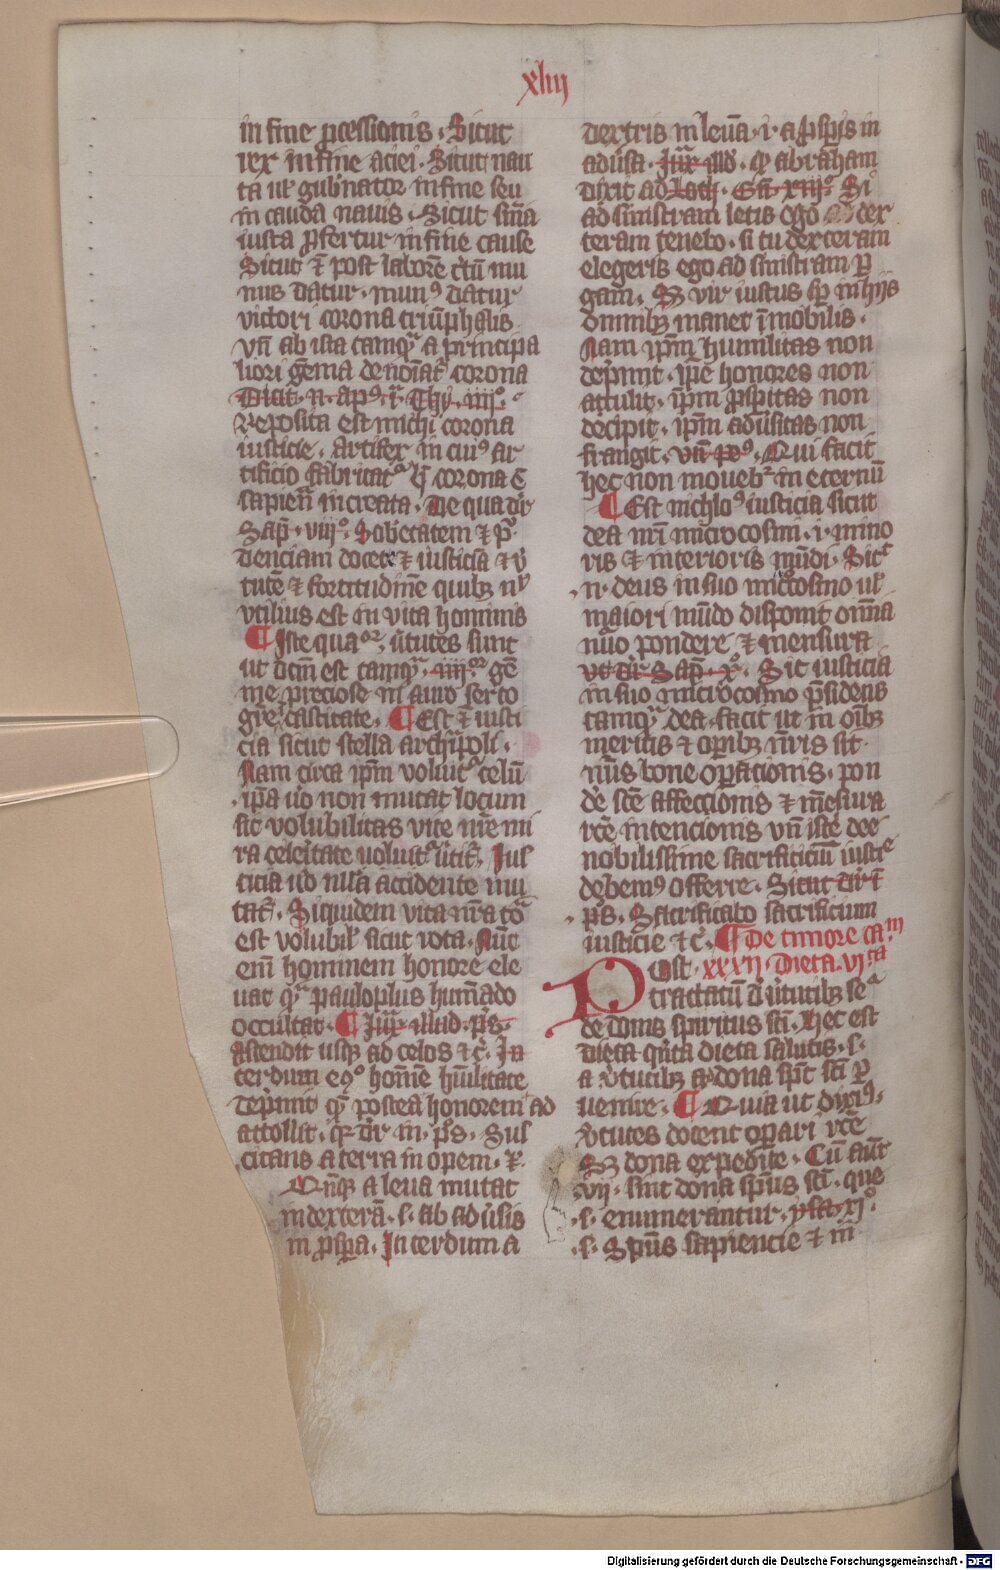 xliij
in fine p̄cessionis. Sicut
rex in fine aciei. Sicut nau
ta ul' gub̄nator in fine seu
in cauda nauis. Sicut sn̄ia
iusta p̄fertur in fine cause
Sicut ⁊ post laborē c̄tū mu
nus datur. munꝰ datur
victori corona triūphalis
vn̄ ab ista tamq̄ a principa
liori gēma denoīat' corona
Dicit. n. apꝰ. ij. Thy. iiijº.
Reposita est michi corona
iusticie. Artifex in cuiꝰ ar
tificio fabricat' corona ē
sapien̄ increata. De qua dr̄
Sap̄. viijº. Sobrietatem ⁊ p̄
denciam docet ⁊ iusticiā ⁊ v̄
tutē ⁊ fortitudinē quibꝫ nl'
vtilius est in vita hominis
¶ Iste quaᵒʳ. v̄tutes sunt
ut dcm̄ est tamq̄. iiijᵒʳ gē
me preciose in auro ser to
gie castitate. ¶ Est ⁊ iusti
cia sicut stella archipoli.
Nam circa ip̄m voluit' celū
ip̄a ūo non mutat locum
sic volubilitas vite nr̄e mi
ra celeritate voluit' Ius
ticia ūo nll'a accidente mu
tat'. Siquidem vita nr̄a to
est volubil' sicut rota. Nūc
eni hominem honore ele
uat q̄ paulo plus humādo
occultat. ¶ Iux̄ illud. p̄s.
Ascendit usqꝫ ad celos ⁊ c̄. In
terdum eqº homīe hūilitate
dep̄mit q̄ postea honorem ad
attollit. q̄ dr̄ in. p̄s. Sus
citans a terra in opem. ⁊.
Vn̄qꝫ a leua mutat
in dexterā. s. ab adūsis
in p̄sp̄a. Interdum a
dextris in leuā. i. a p̄sp̄is in
adūsa. Iux̄ illd'. qd' abraham
dixit ad Loth. Gn̄. xiijº. Si
ad sinistram ieris ego dex
teram tenebo. si tu dexteram
elegeris ego ad sinistram p̄
gam. Sꝫ vir iustus sp̄ in hijs
omnibꝫ manet īmobilis.
Nam ip̄m humilitas non
dep̄mit. ip̄e honores non
attulit. ip̄m p̄sp̄itas non
decipit. ip̄m adūsitas non
frangit. vn̄ p̄sꝰ. Qui facit
hec non moueb' in eternū
¶ Est nichlꝰ iusticia sicut
dea nr̄i microcosmi. i. mino
ris ⁊ interioris mūdi. Sic'
n. deus in suo microcosmo ul'
maiori mūdo disponit omīa
nūo pondere ⁊ mensura
ut dr̄ Sap̄. xº. Sic iusticia
in suo microcosmo p̄sidens
tamq̄ dea facit ut in oībꝫ
meritis ⁊ op̄ibꝫ nr̄is sit.
nūs bone op̄acionis. pon
de' scē affeccionis ⁊ mēsura
rcē intencionis vn̄ iste dee
nobilissime sacrificiū iustie
debemꝰ offerre. Sicut dr̄ ī
p̄s. Sacrificabo sacrificium
iusticie ⁊ c̄. ¶ De timore caᵐ
xxxij. Dieta. viᵗᵃ
Post
tractatū d̄ v̄tutibꝫ se
de donis spiritus sc̄i. hec est
dieta q̄ta dieta salutis. s.
a v̄tutibꝫ a dona sp̄c sc̄i p̄
uenire. ¶ Quia ut dixiꝰ.
v̄tutes docent op̄ari rcē
Sꝫ dona expedite. Cū aūt
vij. sint dona sp̄us sc̄i. que
s. enumerantur. ysa. xjº.
s. Sp̄us sapiencie ⁊ in̄
Digitalisierung gefördert durch die Deutsche Forschungsgemeinschaft - DFG